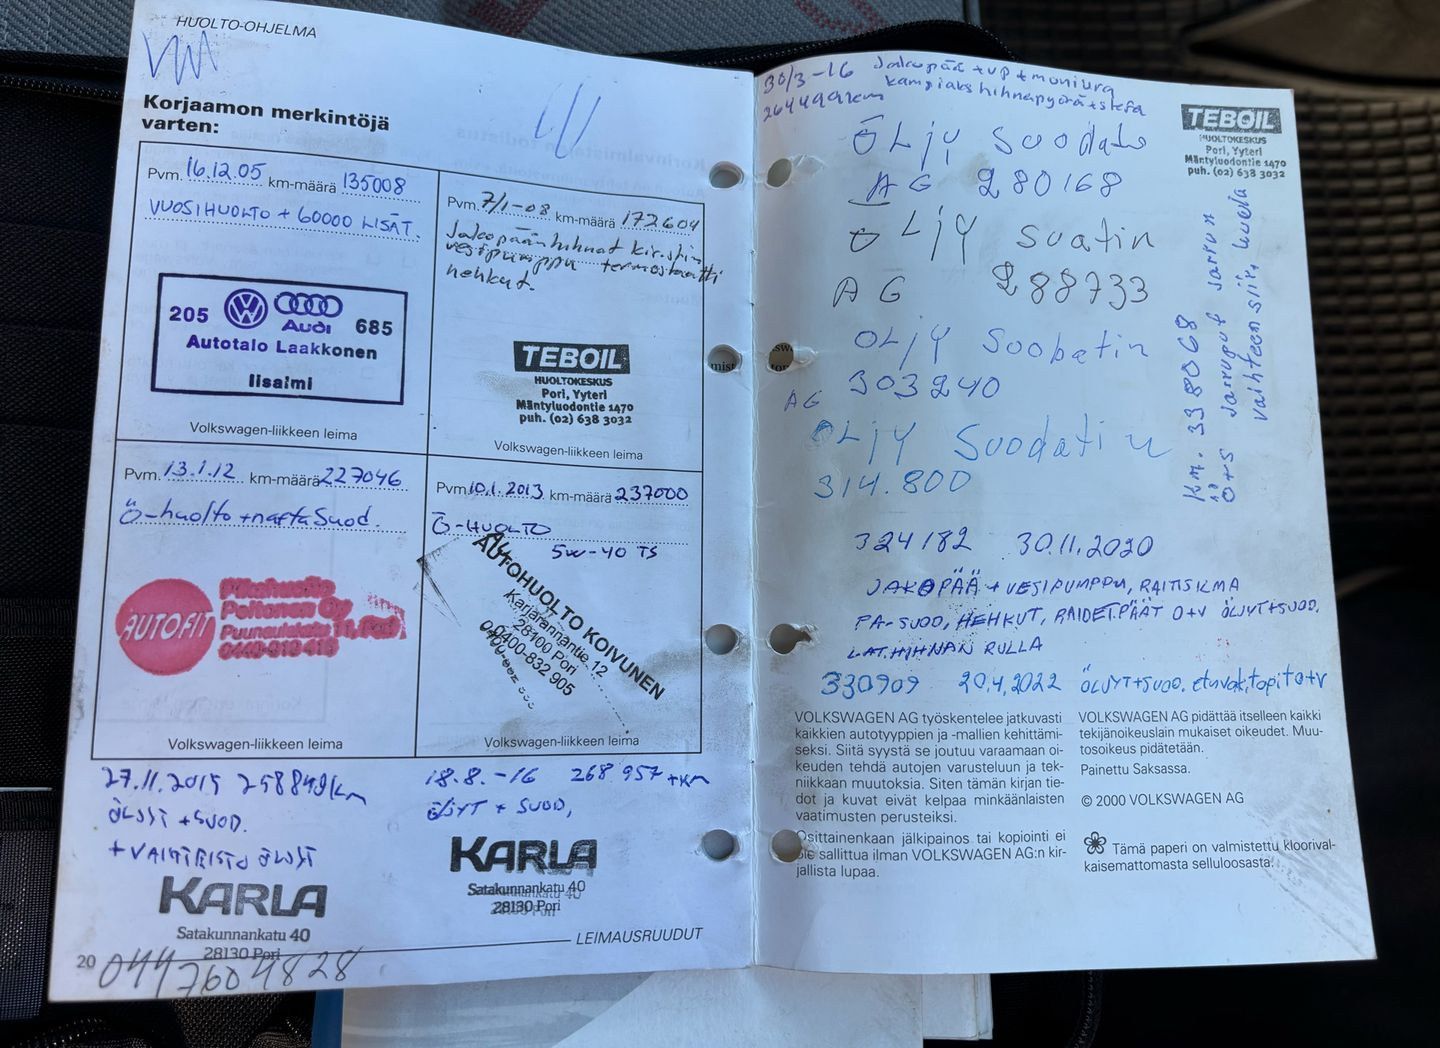 HUOLTO-OHJELMA
Korjaamon merkintöjä
varten:
Pvm. 16.12.05 km-määrä 135008
VUOSIHUOLTO + 60000 LISÄT.
205 Audi 685
Autotalo Laakkonen
Iisalmi
Volkswagen-liikkeen leima
Pvm. 7/1-08 km-määrä 172604
Jakopään hihnat kiristin
vesipumppu termostaatti
hehkut.
TEBOIL
HUOLTOKESKUS
Pori, Yyteri
Mäntyluodontie 1470
puh. (02) 638 3032
Volkswagen-liikkeen leima
Pvm. 13.1.12 km-määrä 227046
Ö-huolto + nafta Suod.
AUTOFIT
Pikahuolto
Peltonen Oy
Puunaulakatu 11, Pori
Volkswagen-liikkeen leima
Pvm. 10.1.2013 km-määrä 237000
Ö-HUOLTO
5W-40 TS
AUTOHUOLTO KOIVUNEN
Karjarannantie 12
28100 Pori
0400-832 905
Volkswagen-liikkeen leima
27.11.2015 258849km
ÖLJYT + SUOD.
+ VAIHTEISTO ÖLJYT
KARLA
Satakunnankatu 40
28130 Pori
18.8.-16 268 957 +km
ÖLJYT + SUOD,
KARLA
Satakunnankatu 40
28130 Pori
LEIMAUSRUUDUT
20
0447604828
30/3-16 Jakopää + vp + moniura
264499km kampiaks hihnapyörä + stefa
TEBOIL
HUOLTOKESKUS
Pori, Yyteri
Mäntyluodontie 1470
puh. (02) 638 3032
ÖLjy Suodate
AG 280168
ÖLjY suatin
AG 288733
OLjY Suobatin
AG 303240
OLjY Suodatin
314.800
km. 338068
Ö+S jarruput jarrun
324182 30.11.2020
JAKOPÄÄ + VESIPUMPPU, RAITISILMA
PA-SUOD, HEHKUT, RAIDET.PÄÄT O+V ÖLJYT+SUOD.
LAT.HIHNAN RULLA
330909 20.4.2022 ÖLJYT+SUOD. etuvak,topit o+v
VOLKSWAGEN AG työskentelee jatkuvasti
kaikkien autotyyppien ja -mallien kehittämi-
seksi. Siitä syystä se joutuu varaamaan oi-
keuden tehdä autojen varusteluun ja tek-
niikkaan muutoksia. Siten tämän kirjan tie-
dot ja kuvat eivät kelpaa minkäänlaisten
vaatimusten perusteiksi.
Osittainenkaan jälkipainos tai kopiointi ei
ole sallittua ilman VOLKSWAGEN AG:n kir-
jallista lupaa.
VOLKSWAGEN AG pidättää itselleen kaikki
tekijänoikeuslain mukaiset oikeudet. Muu-
tosoikeus pidätetään.
Painettu Saksassa.
© 2000 VOLKSWAGEN AG
Tämä paperi on valmistettu kloorival-
kaisemattomasta selluloosasta.